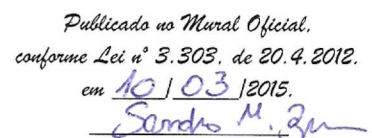 Publicado no Mural Oficial,
conforme Lei nº 3.303, de 20.4.2012.
em 10 / 03 /2015.
Sandro M.